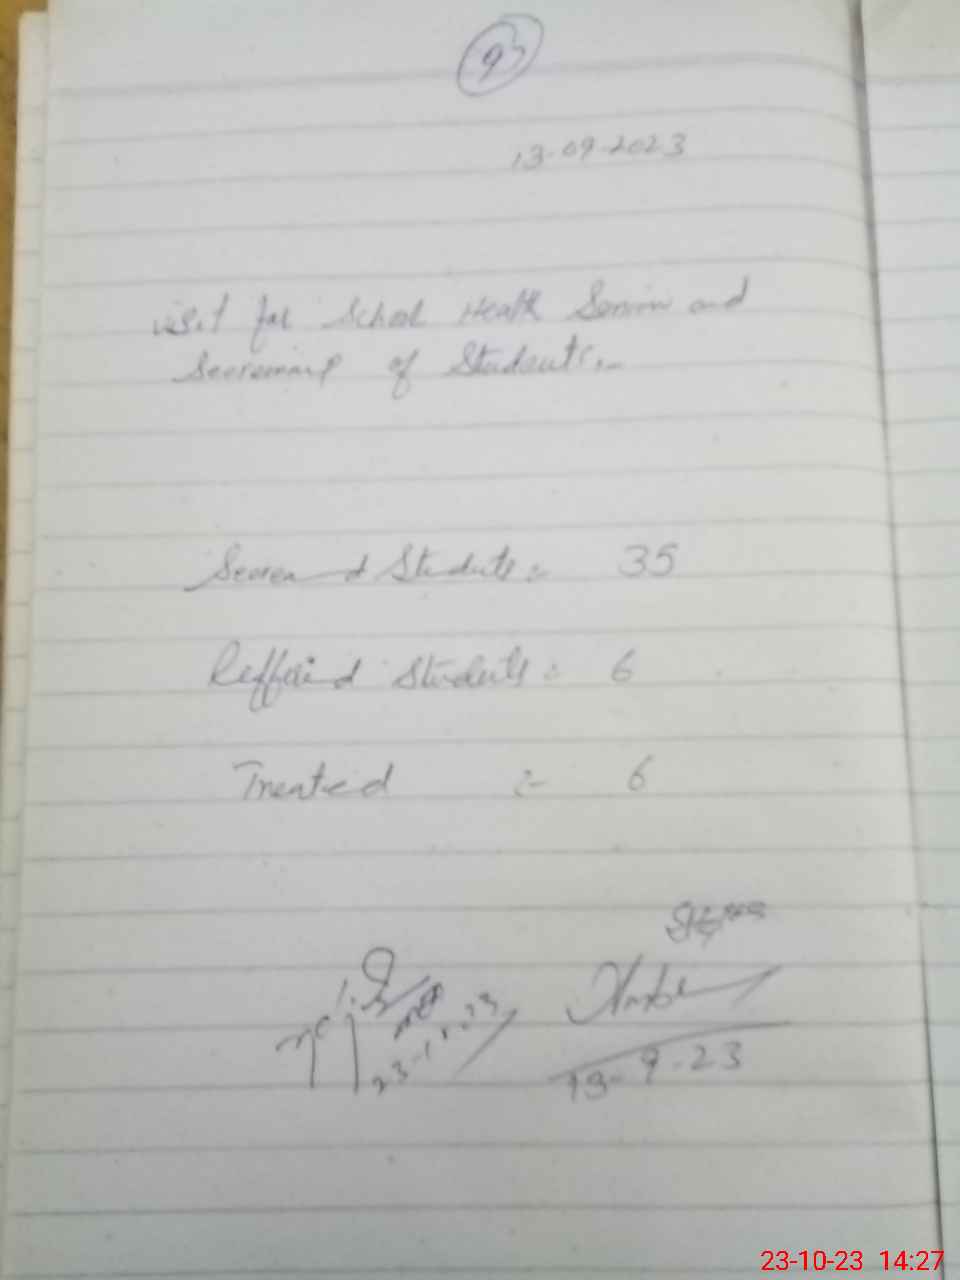 93
13-09-2023
visit for School Health Session and
Screening of Students.-
Screened Students :- 35
Reffered Students :- 6
Treated :- 6
13-9-23
23-10-23 14:27